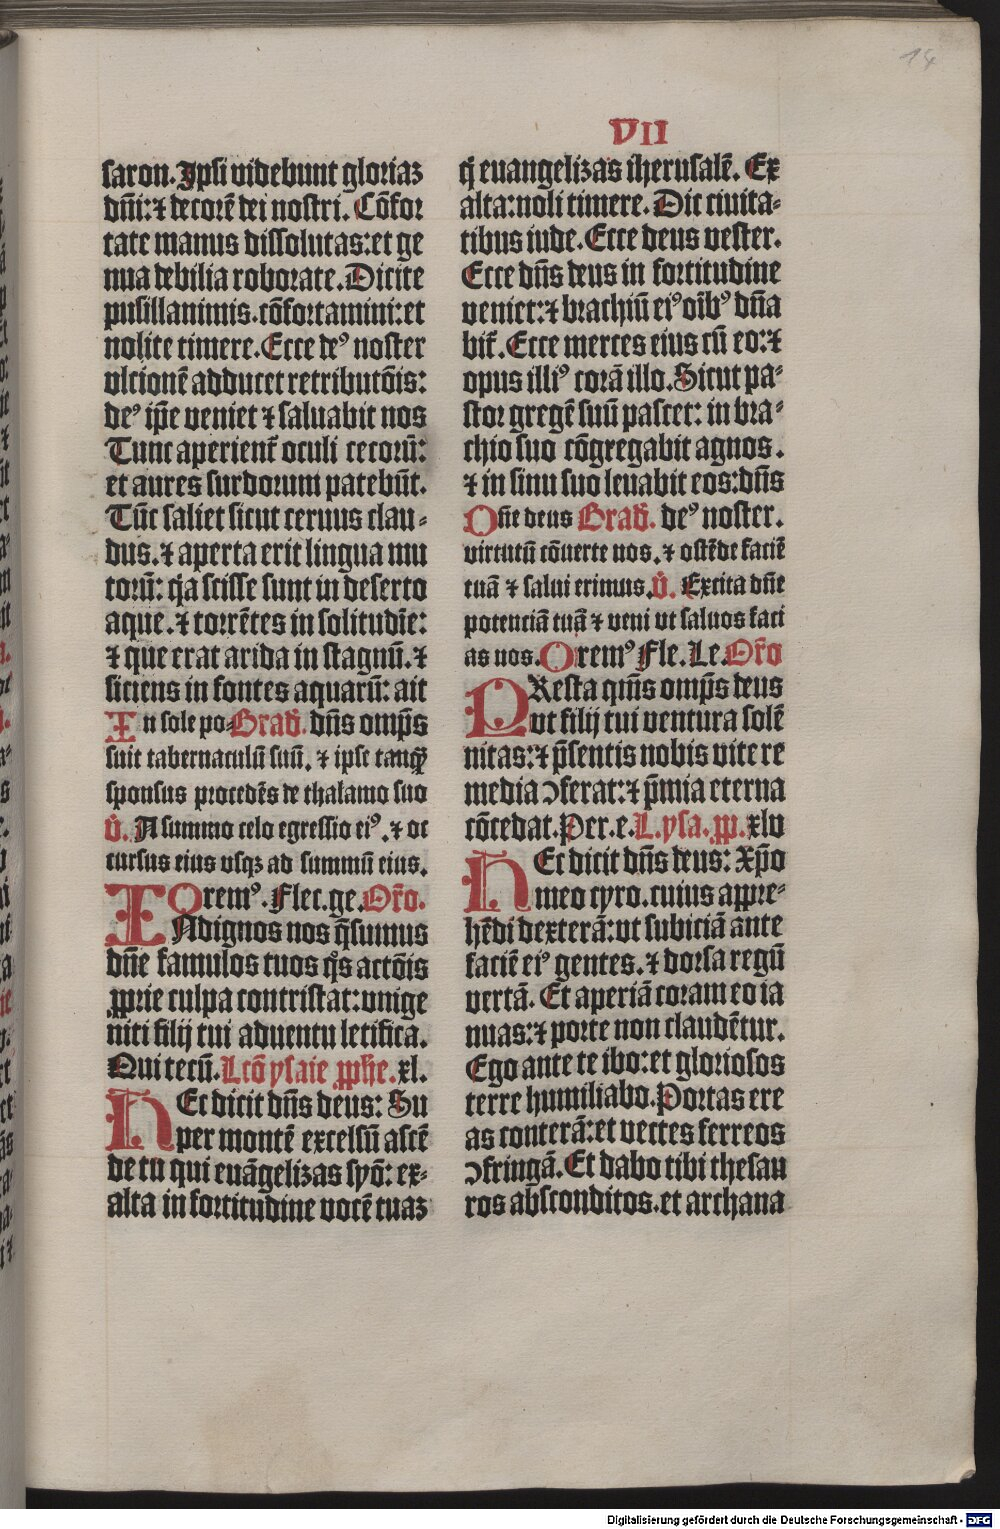 14
VII
saron. Ipsi videbunt gloriaꝫ
dn̄i: ⁊ decorē dei nostri. Cōfor
tate manus dissolutas: et ge
nua debilia roborate. Dicite
pusillanimis. cōfortamini: et
nolite timere. Ecce deꝰ noster
vlcionē adducet retributōis:
deꝰ ip̄e veniet ⁊ saluabit nos
Tunc aperient̄ oculi cecorū:
et aures surdorum patebūt.
Tūc saliet sicut ceruus clau-
dus. ⁊ aperta erit lingua mu
torū: q̄a scisse sunt in deserto
aque. ⁊ torrētes in solitudīe:
⁊ que erat arida in stagnū. ⁊
siciens in fontes aquarū: ait
In sole po- Grad̄. dn̄s omp̄s
suit tabernaculū suū. ⁊ ipse tanqͣꝫ
sponsus procedēs de thalamo suo
v̄. A summo celo egressio eiꝰ. ⁊ oc
cursus eius vsqꝫ ad summū eius.
Oremꝰ. Flec. ge. Or̄o.
INdignos nos q̄sumus
dn̄e famulos tuos q̄s actōis
ꝓprie culpa contristat: vnige
niti filij tui aduentu letifica.
Qui tecū. Lcō ysaie ꝓphe. xl.
HEc dicit dn̄s deus: Su
per montē excelsū ascē
de tu qui euāgelizas syō: ex-
alta in fortitudine vocē tuaꝫ
q̄ euangelizas iherusalē. Ex
alta: noli timere. Dic ciuita-
tibus iude. Ecce deus vester.
Ecce dn̄s deus in fortitudine
veniet: ⁊ brachiū eiꝰ oībꝰ dn̄a
bit̄. Ecce merces eius cū eo: ⁊
opus illiꝰ corā illo. Sicut pa-
stor gregē suū pascet: in bra-
chio suo cōgregabit agnos.
⁊ in sinu suo leuabit eos: dn̄s
On̄e deus Grad̄. deꝰ noster.
virtutū cōuerte nos. ⁊ ostēde faciē
tuā ⁊ salui erimus. v̄. Excita dn̄e
potenciā tuā ⁊ veni vt saluos faci
as nos. Oremꝰ Fle. Le. Or̄o
PResta qm̄s omp̄s deus
vt filij tui ventura solē
nitas: ⁊ p̄sentis nobis vite re
media ↄferat: ⁊ p̄mia eterna
cōcedat. Per. e. L. ysa. ꝓp. xlv
HEc dicit dn̄s deus: Xp̄o
meo cyro. cuius appre-
hēdi dexterā: vt subiciā ante
faciē eiꝰ gentes. ⁊ dorsa regū
vertā. Et aperiā coram eo ia
nuas: ⁊ porte non claudētur.
Ego ante te ibo: et gloriosos
terre humiliabo. Portas ere
as conterā: et vectes ferreos
ↄfringā. Et dabo tibi thesau
ros absconditos. et archana
Digitalisierung gefördert durch die Deutsche Forschungsgemeinschaft - DFG